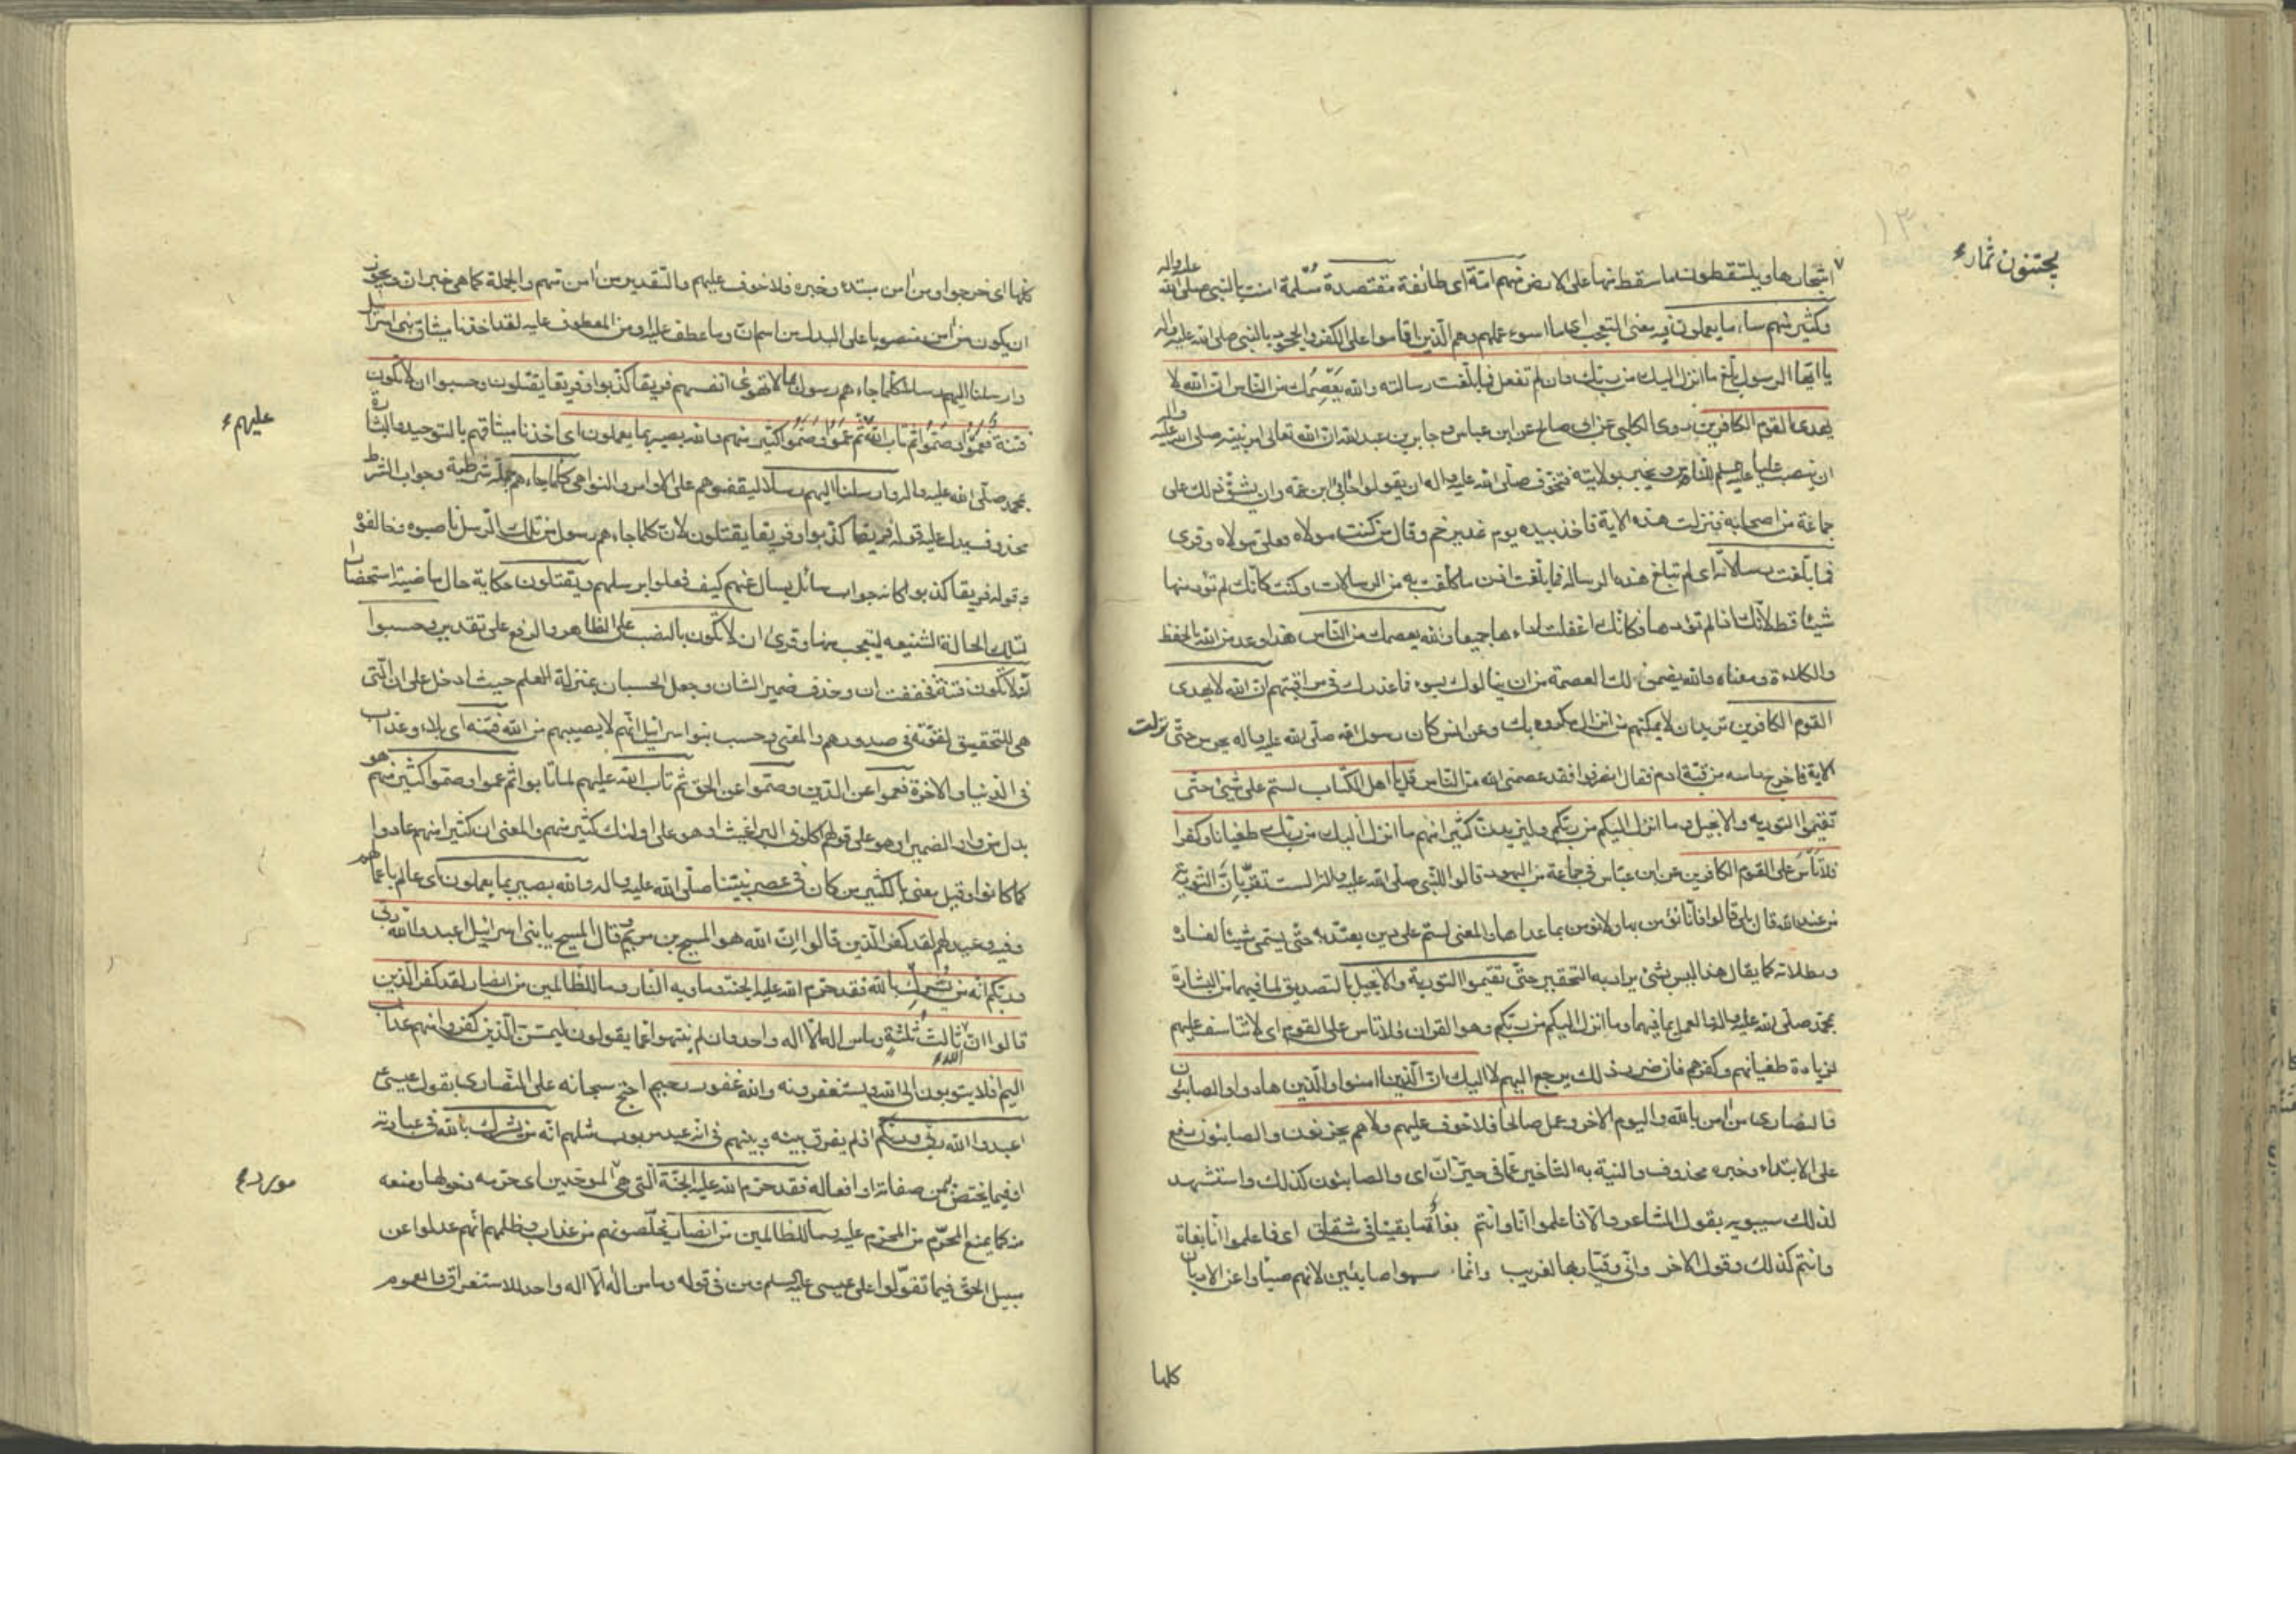 يجتنون ثمار
اشجارها ويلتقطون ما سقط منها على الارض منهم امة اى طائفة مقتصدة مسلمة امنت بالنبى صلى الله عليه واله
وكثير منهم ساء ما يعملون فيه معنى التعجب اى ما اسوء عملهم وهم الذين اقاموا على الكفر والجحود بالنبى صلى الله عليه واله
يا ايها الرسول بلغ ما انزل اليك من ربك وان لم تفعل فما بلغت رسالته والله يعصمك من الناس ان الله لا
يهدى القوم الكافرين روى الكلبى عن ابى صالح عن ابن عباس وجابر بن عبد الله ان الله تعالى امر نبيه صلى الله عليه واله
ان ينصب عليا عليه السلم للناس ويخبر بولايته فتخوف صلى الله عليه واله ان يقولوا حابى ابن عمه وان يشق ذلك على
جماعة من اصحابه فنزلت هذه الاية فاخذ بيده يوم غدير خم وقال من كنت مولاه فعلى مولاه وقرى
فما بلغت رسالاته اى لم تبلغ هذه الرسالة فما بلغت اذن ما كلفت به من الرسالات وكنت كانك لم تؤد منها
شيئا قط لانك اذا لم تؤدها فكانك اغفلت اداءها جميعا والله يعصمك من الناس هذا وعد من الله بالحفظ
والكلاءة ومعناه والله يضمن لك العصمة من ان ينالوك بسوء فما عذرك فى مراقبتهم ان الله لا يهدى
القوم الكافرين يريد ان لا يمكنهم من انزال مكروه بك وعن انس كان رسول الله صلى الله عليه واله يحرس حتى نزلت
الاية فاخرج راسه من قبة ادم فقال انصرفوا فقد عصمنى الله من الناس قل يا اهل الكتاب لستم على شئ حتى
تقيموا التورية والانجيل وما انزل اليكم من ربكم وليزيدن كثيرا منهم ما انزل اليك من ربك طغيانا وكفرا
فلا تأس على القوم الكافرين عن ابن عباس فى جماعة من اليهود قالوا للنبى صلى الله عليه واله الست تقر بان التورية
من عند الله قال بلى قالوا فانا نؤمن بها ولا نؤمن بما عداها والمعنى لستم على دين يعتد به حتى يسمى شيئا لفساده
وبطلانه كما يقال هذا ليس بشئ يراد به التحقير حتى تقيموا التورية والانجيل بالتصديق لما فيهما من البشارة
بمحمد صلى الله عليه واله والعمل بما فيهما وما انزل اليكم من ربكم وهو القران فلا تاس على القوم اى لا تتاسف عليهم
لزيادة طغيانهم وكفرهم فان ضرر ذلك يرجع اليهم لا اليك ان الذين امنوا والذين هادوا والصابئون
والنصارى من امن بالله واليوم الاخر وعمل صالحا فلا خوف عليهم ولا هم يحزنون والصابئون رفع
على الابتداء وخبره محذوف والنية به التاخير عما فى حيز ان اى والصابئون كذلك واستشهد
لذلك سيبويه بقول الشاعر والا فاعلموا انا وانتم بغاة ما بقينا فى شقاق اى فاعلموا انا بغاة
وانتم كذلك وقول الاخر وانى وقيار بها لغريب وانما سموا صابئين لانهم صبئوا عن الاديان
كلها
كلها اى خرجوا ومن امن مبتدء وخبره فلا خوف عليهم والتقدير من امن منهم والجملة كما هى خبر ان ويجوز
ان يكون من امن منصوبا على البدل من اسم ان وما عطف عليه او من المعطوف عليه لقد اخذنا ميثاق بنى اسرائيل
وارسلنا اليهم رسلا كلما جاءهم رسول بما لا تهوى انفسهم فريقا كذبوا وفريقا يقتلون وحسبوا ان لا تكون
فتنة فعموا وصموا ثم تاب الله عليهم ثم عموا وصموا كثير منهم والله بصير بما يعملون اى اخذنا ميثاقهم بالتوحيد والبشارة
بمحمد صلى الله عليه واله وارسلنا اليهم رسلا ليقفوهم على الاوامر والنواهى كلما جاءهم جملة شرطية وجواب الشرط
محذوف يدل عليه قوله فريقا كذبوا وفريقا يقتلون لان كلما جاءهم رسول من تلك الرسل ناصبوه وخالفوه
وقوله فريقا كذبوا كانه جواب سائل يسال عنهم كيف فعلوا برسلهم ويقتلون حكاية حال ماضية استحضارا
لتلك الحالة الشنيعه ليتعجب منها وقرى ان لا تكون بالنصب على الظاهر والرفع على تقدير وحسبوا
انه لا تكون فتنة فخففت ان وحذف ضمير الشان وجعل الحسبان بمنزلة العلم حيث ادخل على ان التى
هى للتحقيق لقوته فى صدورهم والمعنى وحسب بنو اسرائيل انهم لا يصيبهم من الله فتنه اى بلاء وعذاب
فى الدنيا والاخرة فعموا عن الدين وصموا عن الحق ثم تاب الله عليهم لما تابوا ثم عموا وصموا كثير منهم هو
بدل من واو الضمير او هو على قولهم اكلونى البراغيث او هو على اولئك كثير منهم والمعنى ان كثيرا منهم عادوا
كما كانوا وقيل يعنى بالكثير من كان فى عصر نبينا صلى الله عليه واله والله بصير بما يعملون اى عالم باعمالهم
وفيه وعيد لهم لقد كفر الذين قالوا ان الله هو المسيح بن مريم وقال المسيح يا بنى اسرائيل اعبدوا الله ربى
وربكم انه من يشرك بالله فقد حرم الله عليه الجنة وماويه النار وما للظالمين من انصار لقد كفر الذين
قالوا ان الله ثالث ثلثة وما من اله الا اله واحد وان لم ينتهوا عما يقولون ليمسن الذين كفروا منهم عذاب
اليم افلا يتوبون الى الله ويستغفرونه والله غفور رحيم احتج سبحانه على النصارى بقول عيسى
اعبدوا الله ربى وربكم اذ لم يفرق بينه وبينهم فى انه عبد مربوب مثلهم انه من يشرك بالله فى عبادته
او فيما يختص به من صفاته او افعاله فقد حرم الله عليه الجنة التى هى الموحدين اى حرمه دخولها ومنعه
منه كما يمنع المحرم من المحرم عليه وما للظالمين من انصار يخلصونهم من عذاب وظلمهم انهم عدلوا عن
سبيل الحق فيما تقولوا على عيسى عليه السلم ومن فى قوله وما من اله الا اله واحد للاستغراق والعموم
عليهم